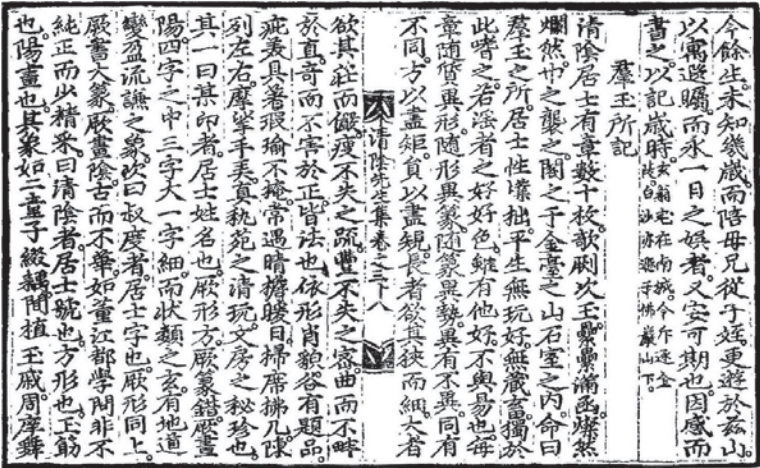 今餘生未知幾歲而陪母兄從子姪更遊於玆山
以寓遐矚而永一日之娛者又安可期也因感而
書之以記歲時玄翁宅在南城今斥遂全
羣玉所記
清陰居士有章數十枚欹劂次玉纍纍滿函燦然
爛然巾之襲之閣之于金臺之山石室之內命曰
羣玉之所居士性慳拙平生無玩好無藏畜獨於
此嗜之若淫者之好好色雖有他好不與易也每
章隨質異形隨形異篆隨篆異勢異有不異同有
不同方以盡矩負以盡規長者欲其狹而細大者
清陰先生集卷之三十八
欲其莊而儼瘦不失之疏豐不失之密曲而不畔
於直奇而不害於正皆法也依形肖貌各有題品
疵美具著瑕瑜不掩常遇晴擔暖日掃席拂几陳
列左右摩挲手美眞執苑之清玩文房之秘珍也
其一曰某印者居士姓名也厥形方厥篆錯厥畫
陽四字之中三字大一字細而狀類之玄有地道
變盈流謙之象次曰叔度者居士字也厥形同上
厥書大篆厥畫陰古而不華如董江都學問非不
純正而少精采曰清陰者居士號也方形也玉筯
也陽畫也其象如二童子綴耦間植玉戚周庠舞